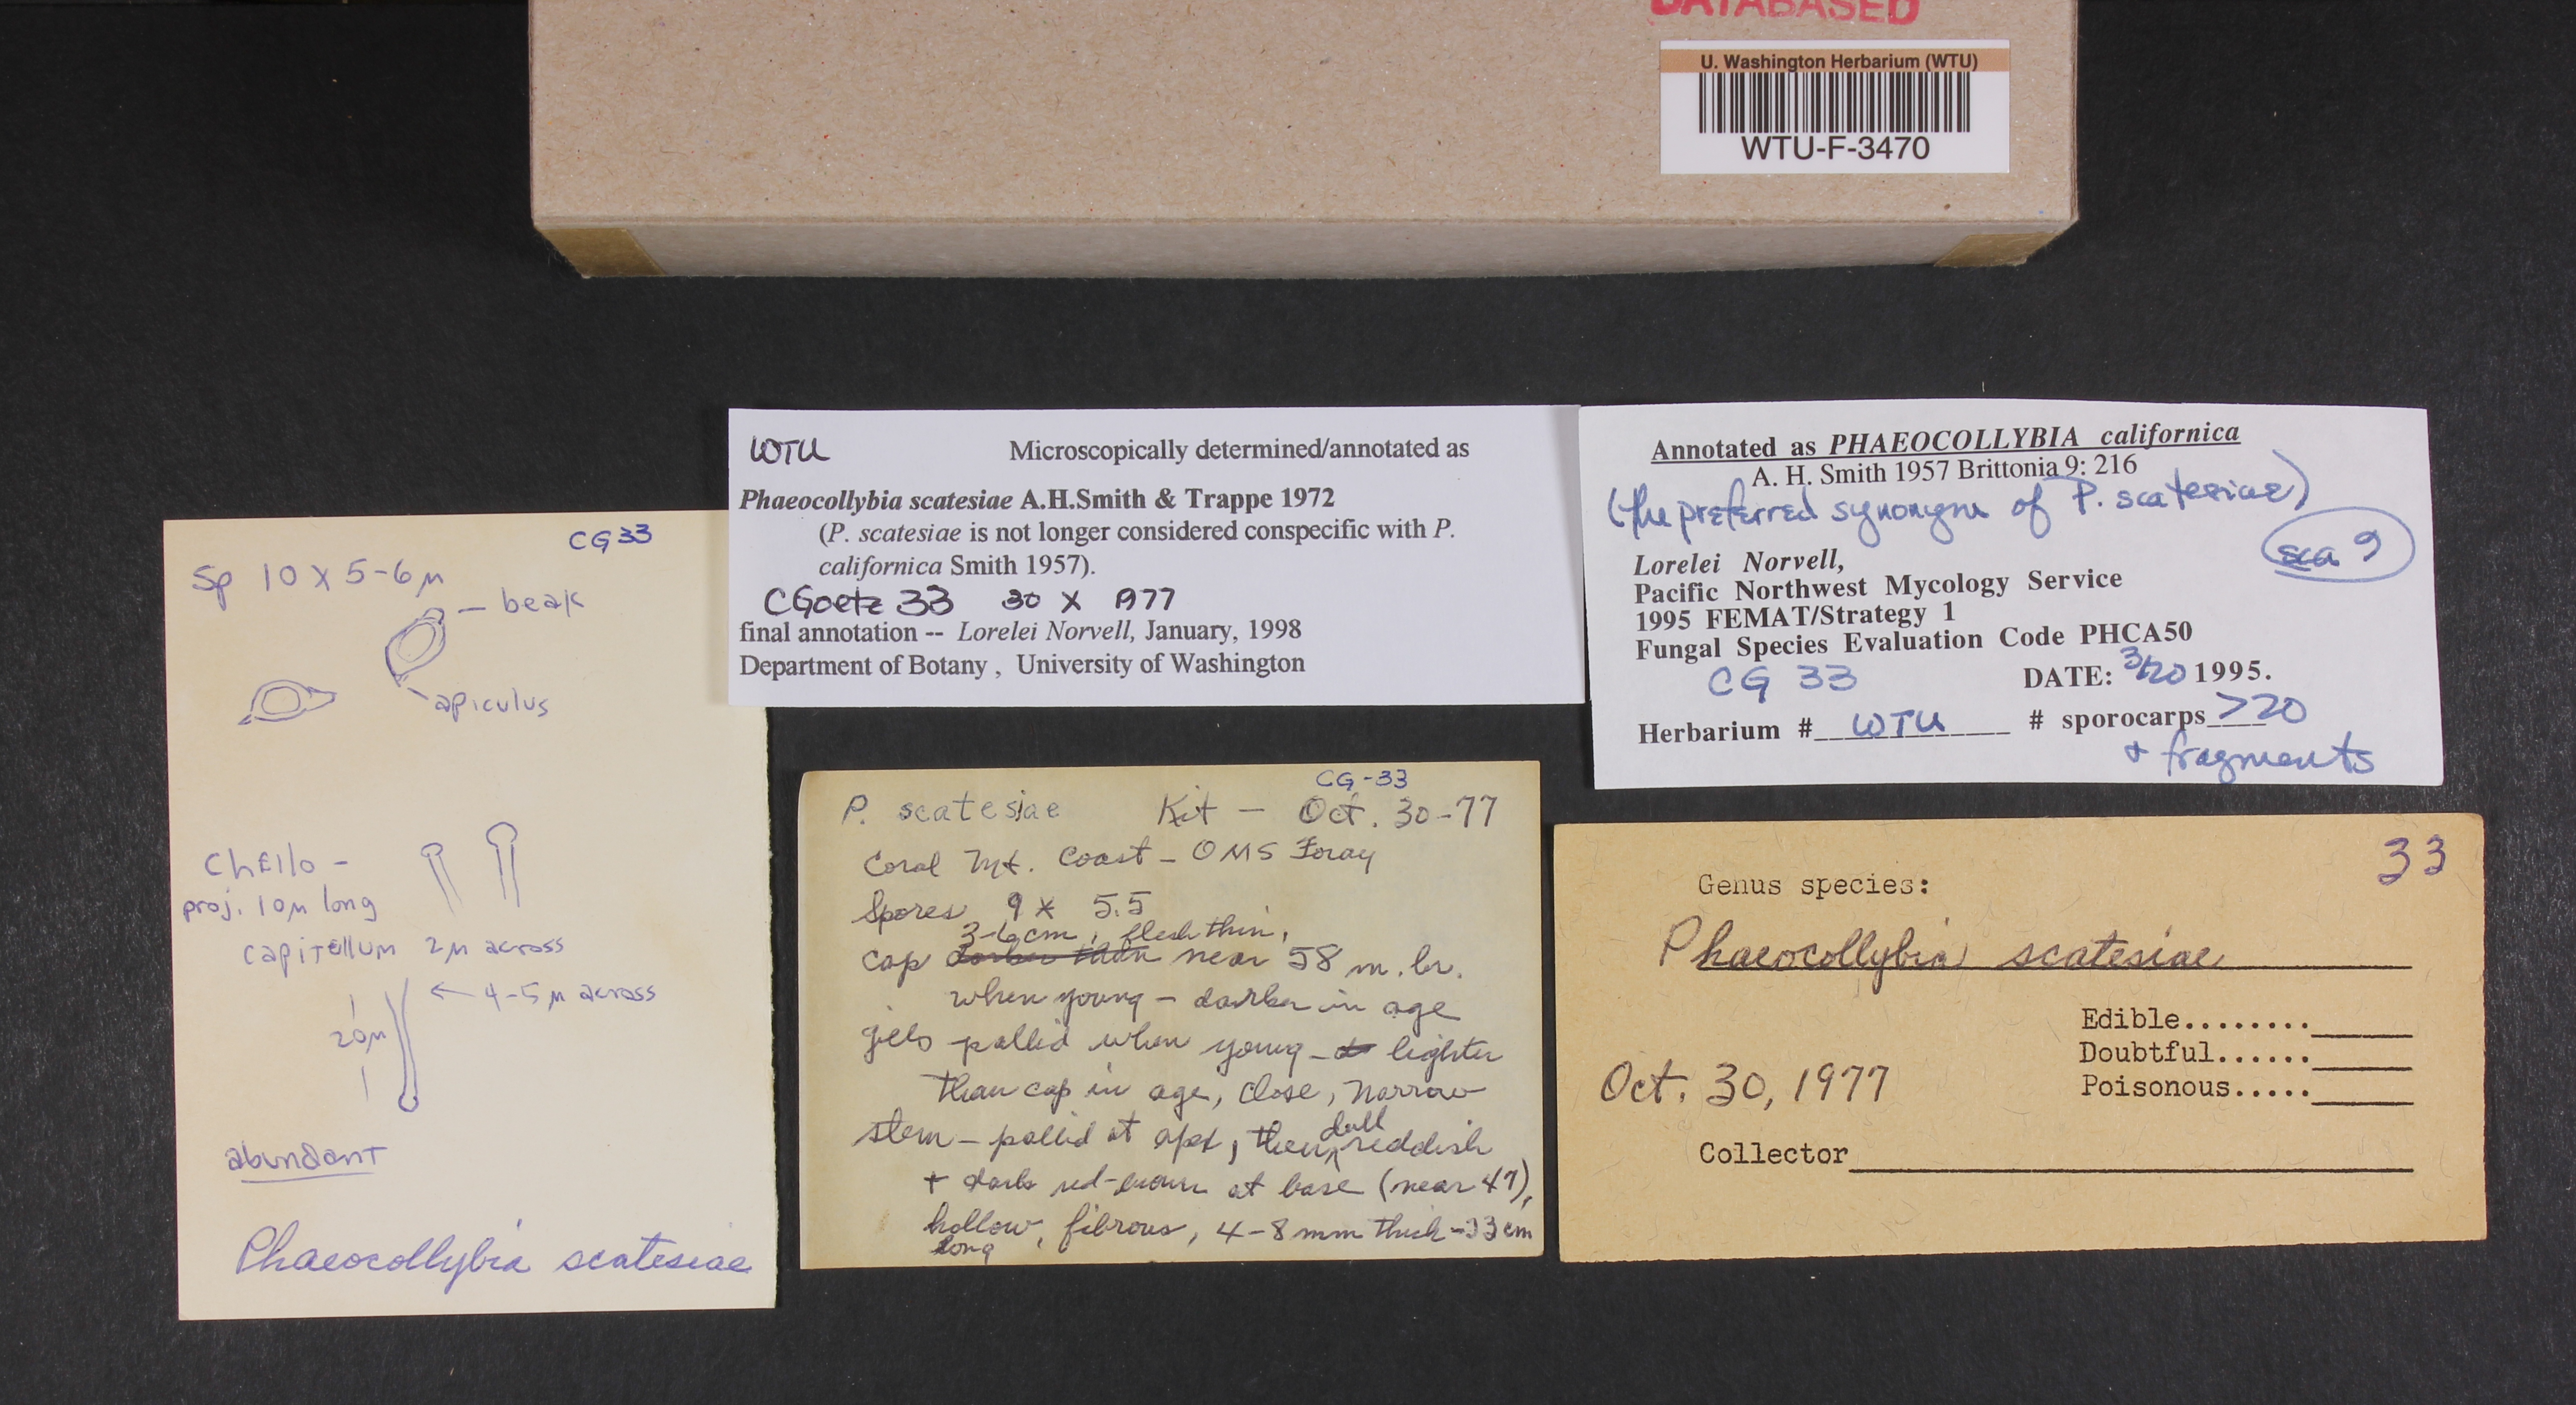 DATABASED
U. Washington Herbarium (WTU)
WTU-F-3470
CG 33
Sp 10 x 5-6µ
beak
apiculus
Chello -
proj. 10µ long
capitellum 2µ across
4-5µ across
20µ
abundant
Phaeocollybia scatesiae
WTU Microscopically determined/annotated as
Phaeocollybia scatesiae A.H.Smith & Trappe 1972
(P. scatesiae is not longer considered conspecific with P.
californica Smith 1957).
CGoetz 33 30 X 1977
final annotation -- Lorelei Norvell, January, 1998
Department of Botany , University of Washington
Annotated as PHAEOCOLLYBIA californica
A. H. Smith 1957 Brittonia 9: 216
(the preferred synonym of P. scatesiae)
sca 9
Lorelei Norvell,
Pacific Northwest Mycology Service
1995 FEMAT/Strategy 1
Fungal Species Evaluation Code PHCA50
CG 33 DATE: 3/20 1995.
Herbarium # WTU # sporocarps >20
+ fragments
CG-33
P. scatesiae Kit - Oct. 30-77
Coral Mt. Coast - OMS Foray
Spores 9 x 5.5
3-6 cm, flesh thin,
cap darker than near 58 m. br.
when young - darker in age
gills pallid when young - lighter
than cap in age, close, narrow
stem - pallid at apex, then dull reddish
+ dark red-brown at base (near 47),
hollow, fibrous, 4-8 mm thick -33 cm
long
33
Genus species:
Phaeocollybia scatesiae
Edible........
Doubtful......
Poisonous.....
Oct. 30, 1977
Collector